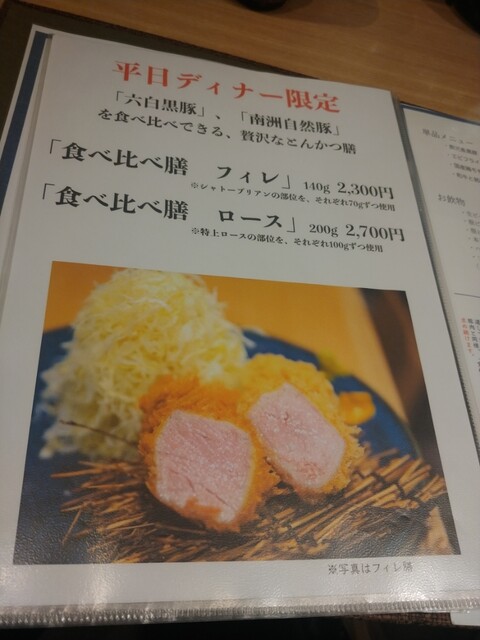 平日ディナー限定
「六白黒豚」、「南洲自然豚」
を食べ比べできる、贅沢なとんかつ膳
「食べ比べ膳　フィレ」 140g 2,300円
※シャトーブリアンの部位を、それぞれ70gずつ使用
「食べ比べ膳　ロース」 200g 2,700円
※特上ロースの部位を、それぞれ100gずつ使用
※写真はフィレ膳
単品メニュー
お飲物